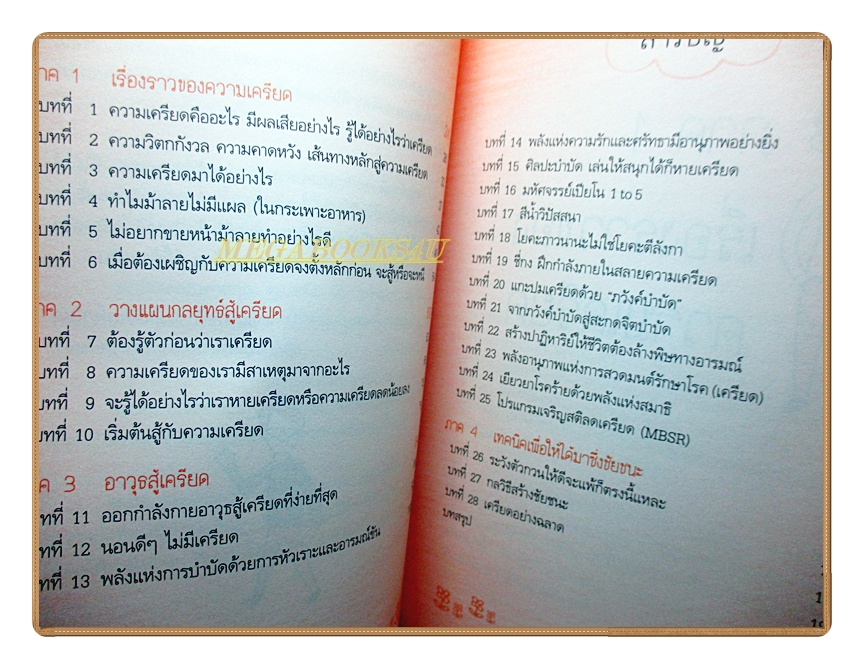 ภาค 1 เรื่องราวของความเครียด
บทที่ 1 ความเครียดคืออะไร มีผลเสียอย่างไร รู้ได้อย่างไรว่าเครียด
บทที่ 2 ความวิตกกังวล ความคาดหวัง เส้นทางหลักสู่ความเครียด
บทที่ 3 ความเครียดมาได้อย่างไร
บทที่ 4 ทำไมม้าลายไม่มีแผล (ในกระเพาะอาหาร)
บทที่ 5 ไม่อยากขายหน้าม้าลายทำอย่างไรดี
MEGABOOKS4U
บทที่ 6 เมื่อต้องเผชิญกับความเครียดจงตั้งหลักก่อน จะสู้หรือจะหนี
ภาค 2 วางแผนกลยุทธ์สู้เครียด
บทที่ 7 ต้องรู้ตัวก่อนว่าเราเครียด
บทที่ 8 ความเครียดของเรามีสาเหตุมาจากอะไร
บทที่ 9 จะรู้ได้อย่างไรว่าเราหายเครียดหรือความเครียดลดน้อยลง
บทที่ 10 เริ่มต้นสู้กับความเครียด
ภาค 3 อาวุธสู้เครียด
บทที่ 11 ออกกำลังกายอาวุธสู้เครียดที่ง่ายที่สุด
บทที่ 12 นอนดีๆ ไม่มีเครียด
บทที่ 13 พลังแห่งการบำบัดด้วยการหัวเราะและอารมณ์ขัน
สารบัญ
บทที่ 14 พลังแห่งความรักและศรัทธามีอานุภาพอย่างยิ่ง
บทที่ 15 ศิลปะบำบัด เล่นให้สนุกได้ก็หายเครียด
บทที่ 16 มหัศจรรย์เปียโน 1 to 5
บทที่ 17 สีน้ำวิปัสสนา
บทที่ 18 โยคะภาวนานะไม่ใช่โยคะตีลังกา
บทที่ 19 ชี่กง ฝึกกำลังภายในสลายความเครียด
บทที่ 20 แกะปมเครียดด้วย “ภวังค์บำบัด”
บทที่ 21 จากภวังค์บำบัดสู่สะกดจิตบำบัด
บทที่ 22 สร้างปาฏิหาริย์ให้ชีวิตต้องล้างพิษทางอารมณ์
บทที่ 23 พลังอานุภาพแห่งการสวดมนต์รักษาโรค (เครียด)
บทที่ 24 เยียวยาโรคร้ายด้วยพลังแห่งสมาธิ
บทที่ 25 โปรแกรมเจริญสติลดเครียด (MBSR)
ภาค 4 เทคนิคเพื่อให้ได้มาซึ่งชัยชนะ
บทที่ 26 ระวังตัวกวนให้ดีจะแพ้ก็ตรงนี้แหละ
บทที่ 27 กลวิธีสร้างชัยชนะ
บทที่ 28 เครียดอย่างฉลาด
บทสรุป